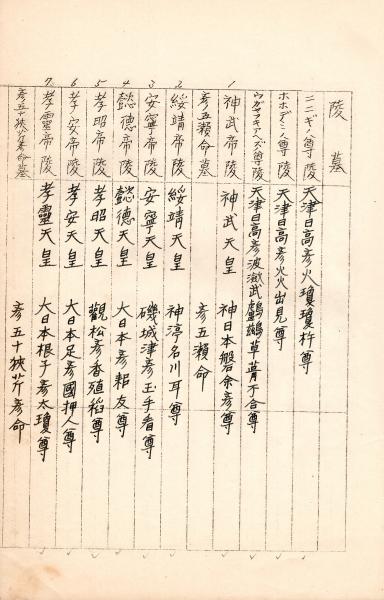 陵墓
ニニギノ尊陵 天津日高彦火瓊瓊杵尊
ホホデミノ尊陵 天津日高彦火火出見尊
ウガヤフキアヘズノ尊陵 天津日高彦波瀲武鸕鷀草葺不合尊
1 神武帝陵 神武天皇 神日本磐余彦尊
彦五瀬命墓 彦五瀬命
2 綏靖帝陵 綏靖天皇 神渟名川耳尊
3 安寧帝陵 安寧天皇 磯城津彦玉手看尊
4 懿德帝陵 懿德天皇 大日本彦耜友尊
5 孝昭帝陵 孝昭天皇 觀松彦香殖稻尊
6 孝安帝陵 孝安天皇 大日本足彦國押人尊
7 孝靈帝陵 孝靈天皇 大日本根子彦太瓊尊
彦五十狹芹彦命墓 彦五十狹芹彦命